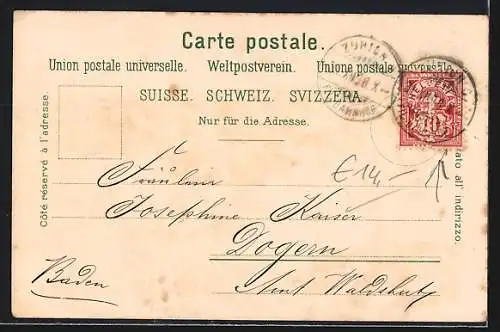 Carte postale.
Union postale universelle. Weltpostverein. Unione postale universale.
SUISSE. SCHWEIZ. SVIZZERA.
Nur für die Adresse.
Côté réservé à l'adresse.
all' indirizzo.
ZÜRICH
HELVETIA
10
€ 14,-
Fräulein
Josephine Kaiser
Dogern
Amt Waldshut
Baden